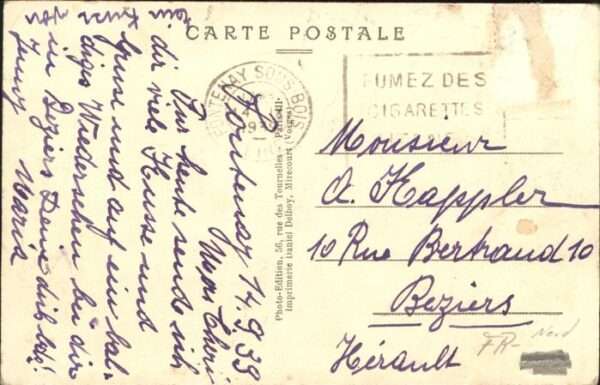 CARTE POSTALE
FONTENAY SOUS BOIS
FUMEZ DES
CIGARETTES
Photo-Edition, 56, rue des Tournelles - Paris-III
imprimerie Daniel Delboy, Mirecourt (Vosges)
Fontenay 14.9.39
Mon Cheri
Für heute sende ich
dir viele Küsse und
Grüsse und auf ein bal-
diges Wiedersehen bei dir
in Beziers Deine dich lbd.
Jenny Maria
Monsieur
A. Kappler
10 Rue Bertrand 10
Beziers
Hérault
FR-
Nord